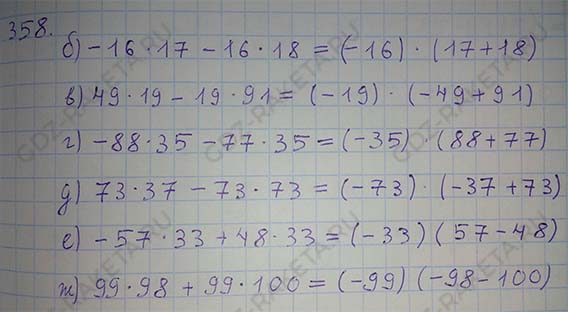 358.
б) -16 · 17 - 16 · 18 = (-16) · (17+18)
в) 49 · 19 - 19 · 91 = (-19) · (-49 + 91)
г) -88 · 35 - 77 · 35 = (-35) · (88 + 77)
д) 73 · 37 - 73 · 73 = (-73) · (-37 + 73)
е) -57 · 33 + 48 · 33 = (-33) (57 - 48)
ж) 99 · 98 + 99 · 100 = (-99) (-98 - 100)
GDZ-RAKETA.RU